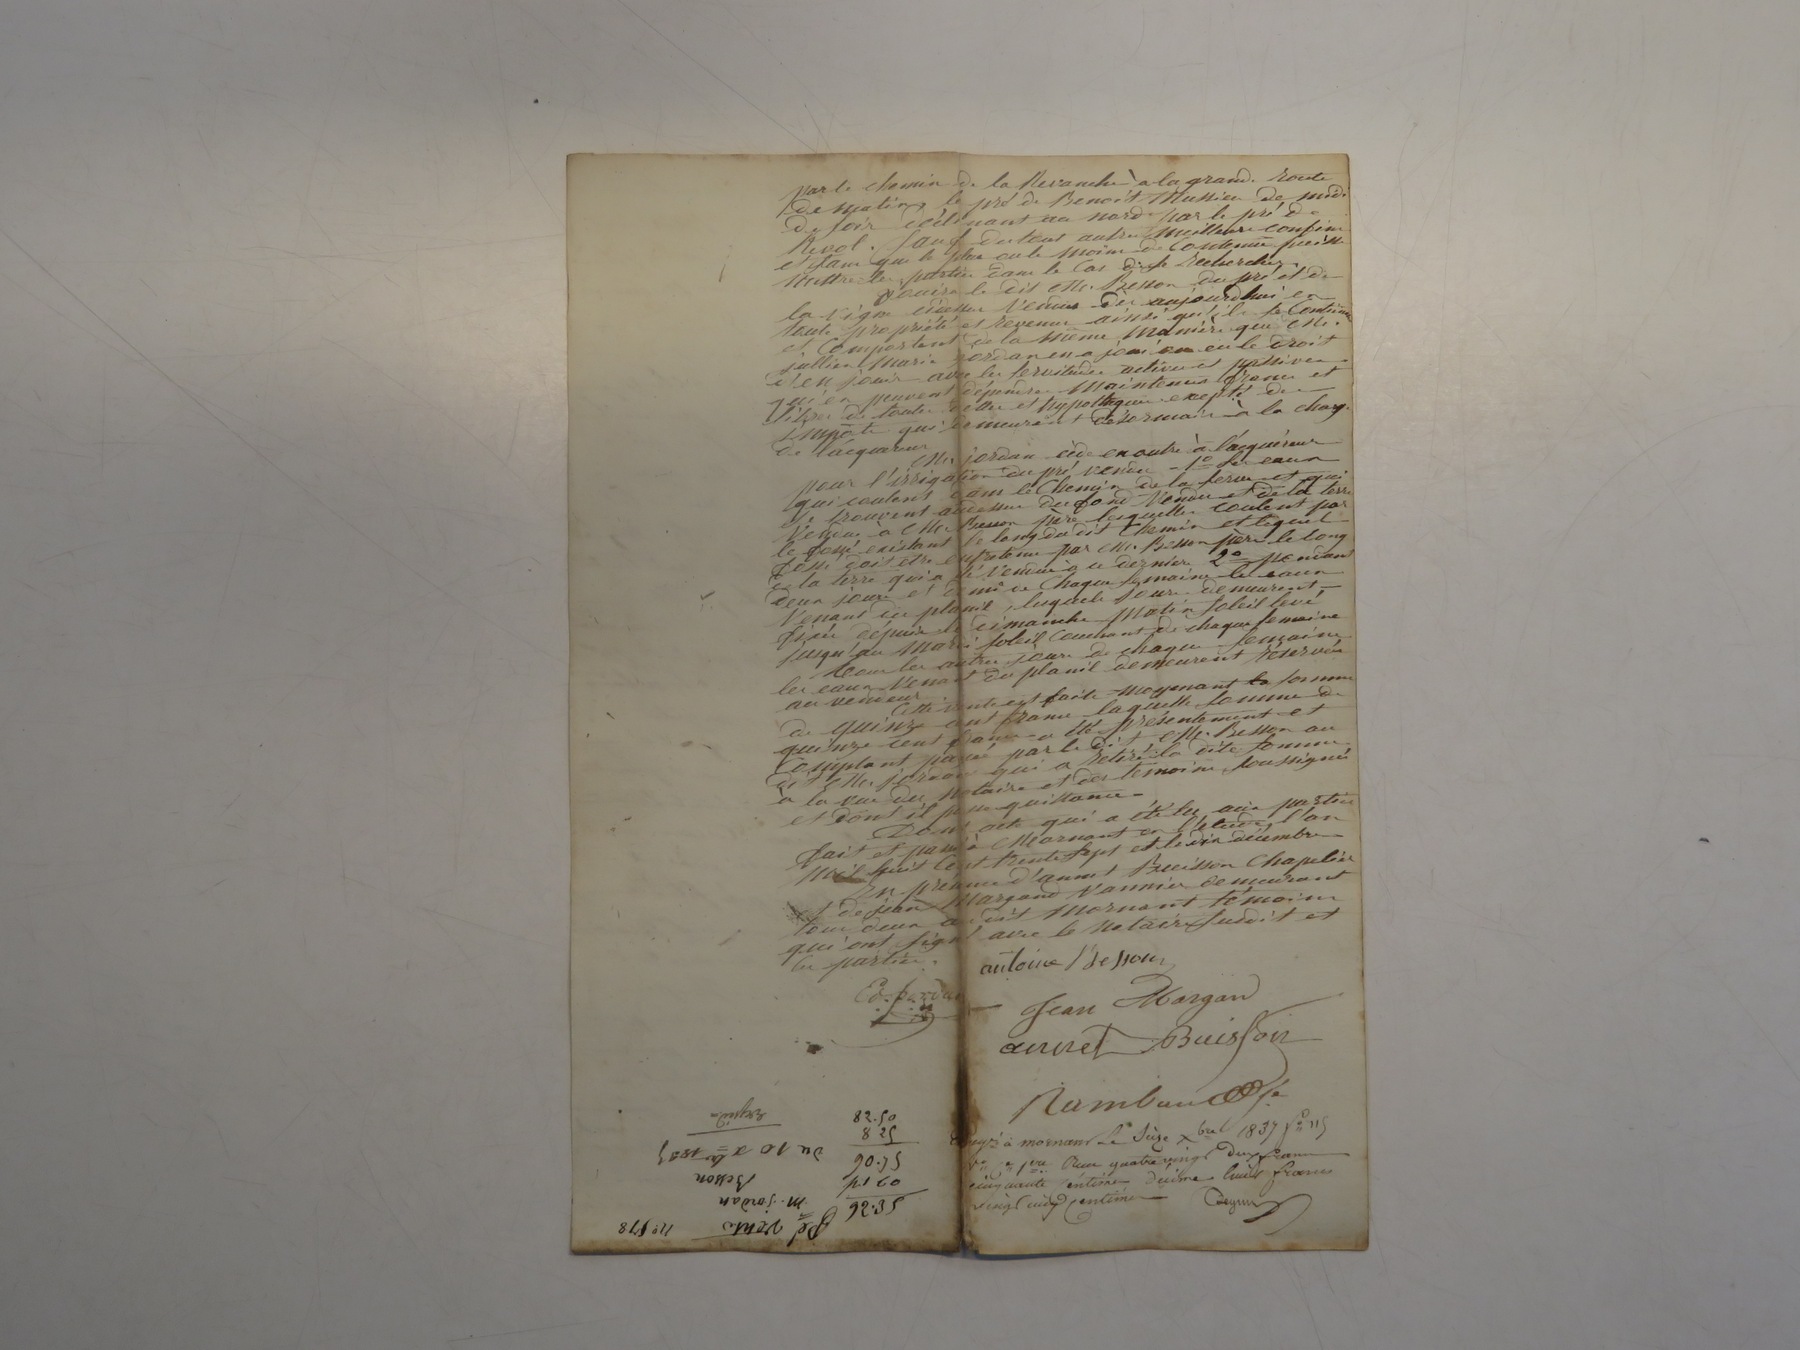 par le chemin de la Revanche à la grande route
de matin, le pré de Benoit Mussieu de midi
de soir déclinant au nord par le pré de
Revol. Sauf de tout autre meilleurs confins
et sans que le plus ou le moins de contenue puisse
mettre les parties dans le cas de se rechercher.
Jouira le dit Mr. Besson du pré et de
la vigne dessus vendus dès aujourdhui en
toute propriété et revenus ainsi qu'ils se continue
et comportent de la même manière que Mr.
Jullien Marie Jordan en a joui ou eu le droit
d'en jouir avec les servitudes actives et passives
qui en peuvent dépendre maintenus francs et
libres de toutes dettes et hypothèques excepté des
impôts qui demeurent désormais à la charge
de l'acquéreur
Mr. Jordan cède en outre à l'acquéreur
pour l'irrigation du pré vendu 1o les eaux
qui coulent dans le chemin de la ferme et qui
se trouvent audessus du fond vendu et de la terre
vendue à Mr. Besson père lesquelles coulent par
le fossé existant le long du dit chemin et lequel
fossé doit etre entretenu par Mr. Besson père le long
de la terre qui a été vendue à ce dernier 2o pendant
deux jours et demi de chaque semaine les eaux
venant du planil, lesquels jours demeurent
fixés dépuis le dimanche matin soleil levé
jusqu'au mardi soleil couchant de chaque semaine
tous les autres jours de chaque semaine
les eaux venant du planil demeurent réservées
au vendeur
Cette vente est faite moyenant la somme
de quinze cent francs laquelle somme de
quinze cent francs a été présentement et
comptant payée par le dit Mr. Besson au
dit Mr. Jordan qui a retiré la dite somme
à la vue du notaire et des témoins soussignés
et dont il passe quittance
Dont acte qui a été lu aux parties
fait et passé à Mornant en l'étude l'an
mil huit cent trente sept et le dix décembre
En présence d'annet Buisson chapelier
et de jean Margand vannier demeurant
tous deux au dit Mornant témoins
qui ont signé avec le notaire susdit et
les parties.
antoine Besson
Ed. Jordan
Jean Margan
annet Buisson
Rambaud
Enregé à mornant Le Seize Xbre 1837 fo 115
Vo Cse 1ere Reçu quatre vingt deux francs
cinquante centimes décime huit francs
vingt cinq centimes
No 578
Pel vente
M. Jordan
Besson
du 10 Xbre 1837
Expédié
58.26
02 14
56.06
52 8
03.28